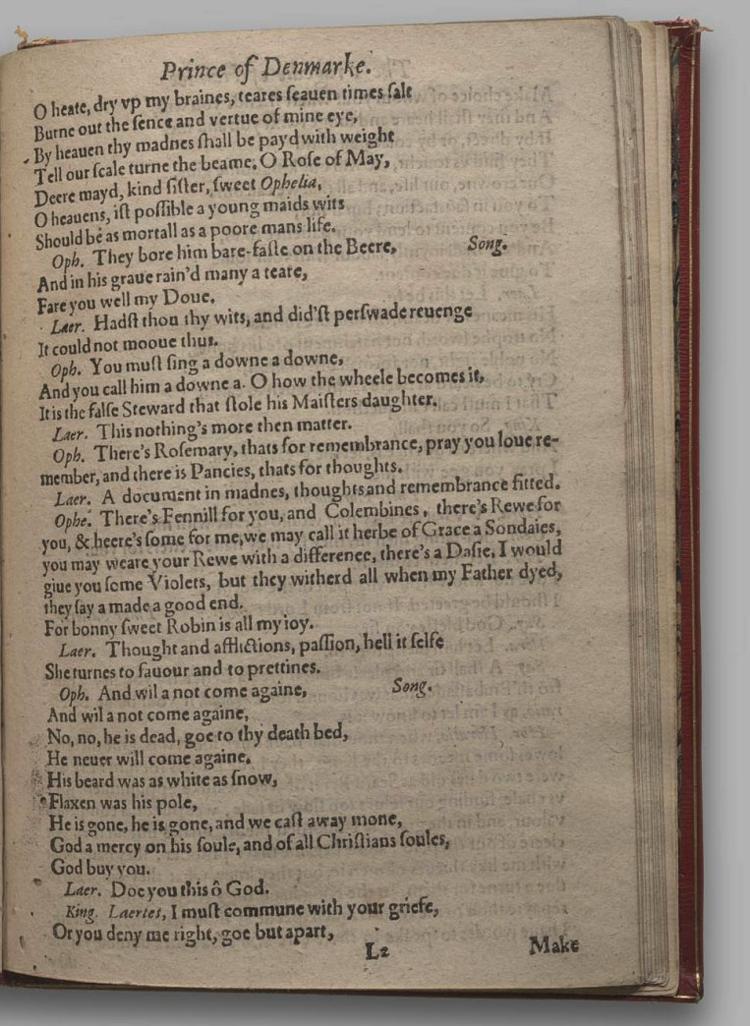 Prince of Denmarke.
O heate, dry vp my braines, teares ſeauen times ſalt
Burne out the ſence and vertue of mine eye,
By heauen thy madnes ſhall be payd with weight
Tell our ſcale turne the beame. O Roſe of May,
Deere mayd, kind ſiſter, ſweet Ophelia,
O heauens, iſt poſſible a young maids wits
Should be as mortall as a poore mans life.
Oph. They bore him bare-faſte on the Beere, Song.
And in his graue rain'd many a teare,
Fare you well my Doue.
Laer. Hadſt thou thy wits, and did'ſt perſwade reuenge
It could not mooue thus.
Oph. You muſt ſing a downe a downe,
And you call him a downe a. O how the wheele becomes it,
It is the falſe Steward that ſtole his Maiſters daughter.
Laer. This nothing's more then matter.
Oph. There's Roſemary, thats for remembrance, pray you loue re-
member, and there is Pancies, thats for thoughts.
Laer. A document in madnes, thoughts and remembrance fitted.
Ophe. There's Fennill for you, and Colembines, there's Rewe for
you, & heere's ſome for me, we may call it herbe of Grace a Sondaies,
you may weare your Rewe with a difference, there's a Daſie, I would
giue you ſome Violets, but they witherd all when my Father dyed,
they ſay a made a good end.
For bonny ſweet Robin is all my ioy.
Laer. Thought and afflictions, paſſion, hell it ſelfe
She turnes to fauour and to prettines.
Oph. And wil a not come againe, Song.
And wil a not come againe,
No, no, he is dead, goe to thy death bed,
He neuer will come againe.
His beard was as white as ſnow,
Flaxen was his pole,
He is gone, he is gone, and we caſt away mone,
God a mercy on his ſoule, and of all Chriſtians ſoules,
God buy you.
Laer. Doe you this ô God.
King. Laertes, I muſt commune with your griefe,
Or you deny me right, goe but apart,
L2 Make